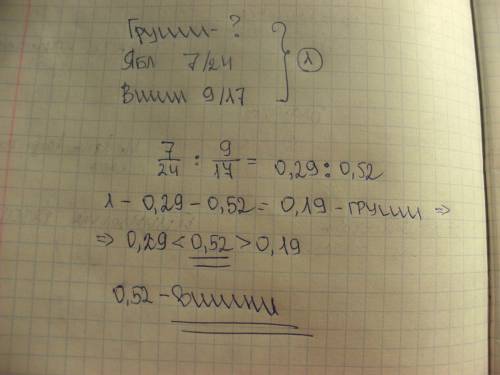 Груши - ?
Ябл 7/24
Вишн 9/17
} 1
7/24 : 9/17 = 0,29 : 0,52
1 - 0,29 - 0,52 = 0,19 - груши ⇒
⇒ 0,29 < 0,52 > 0,19
0,52 - вишни